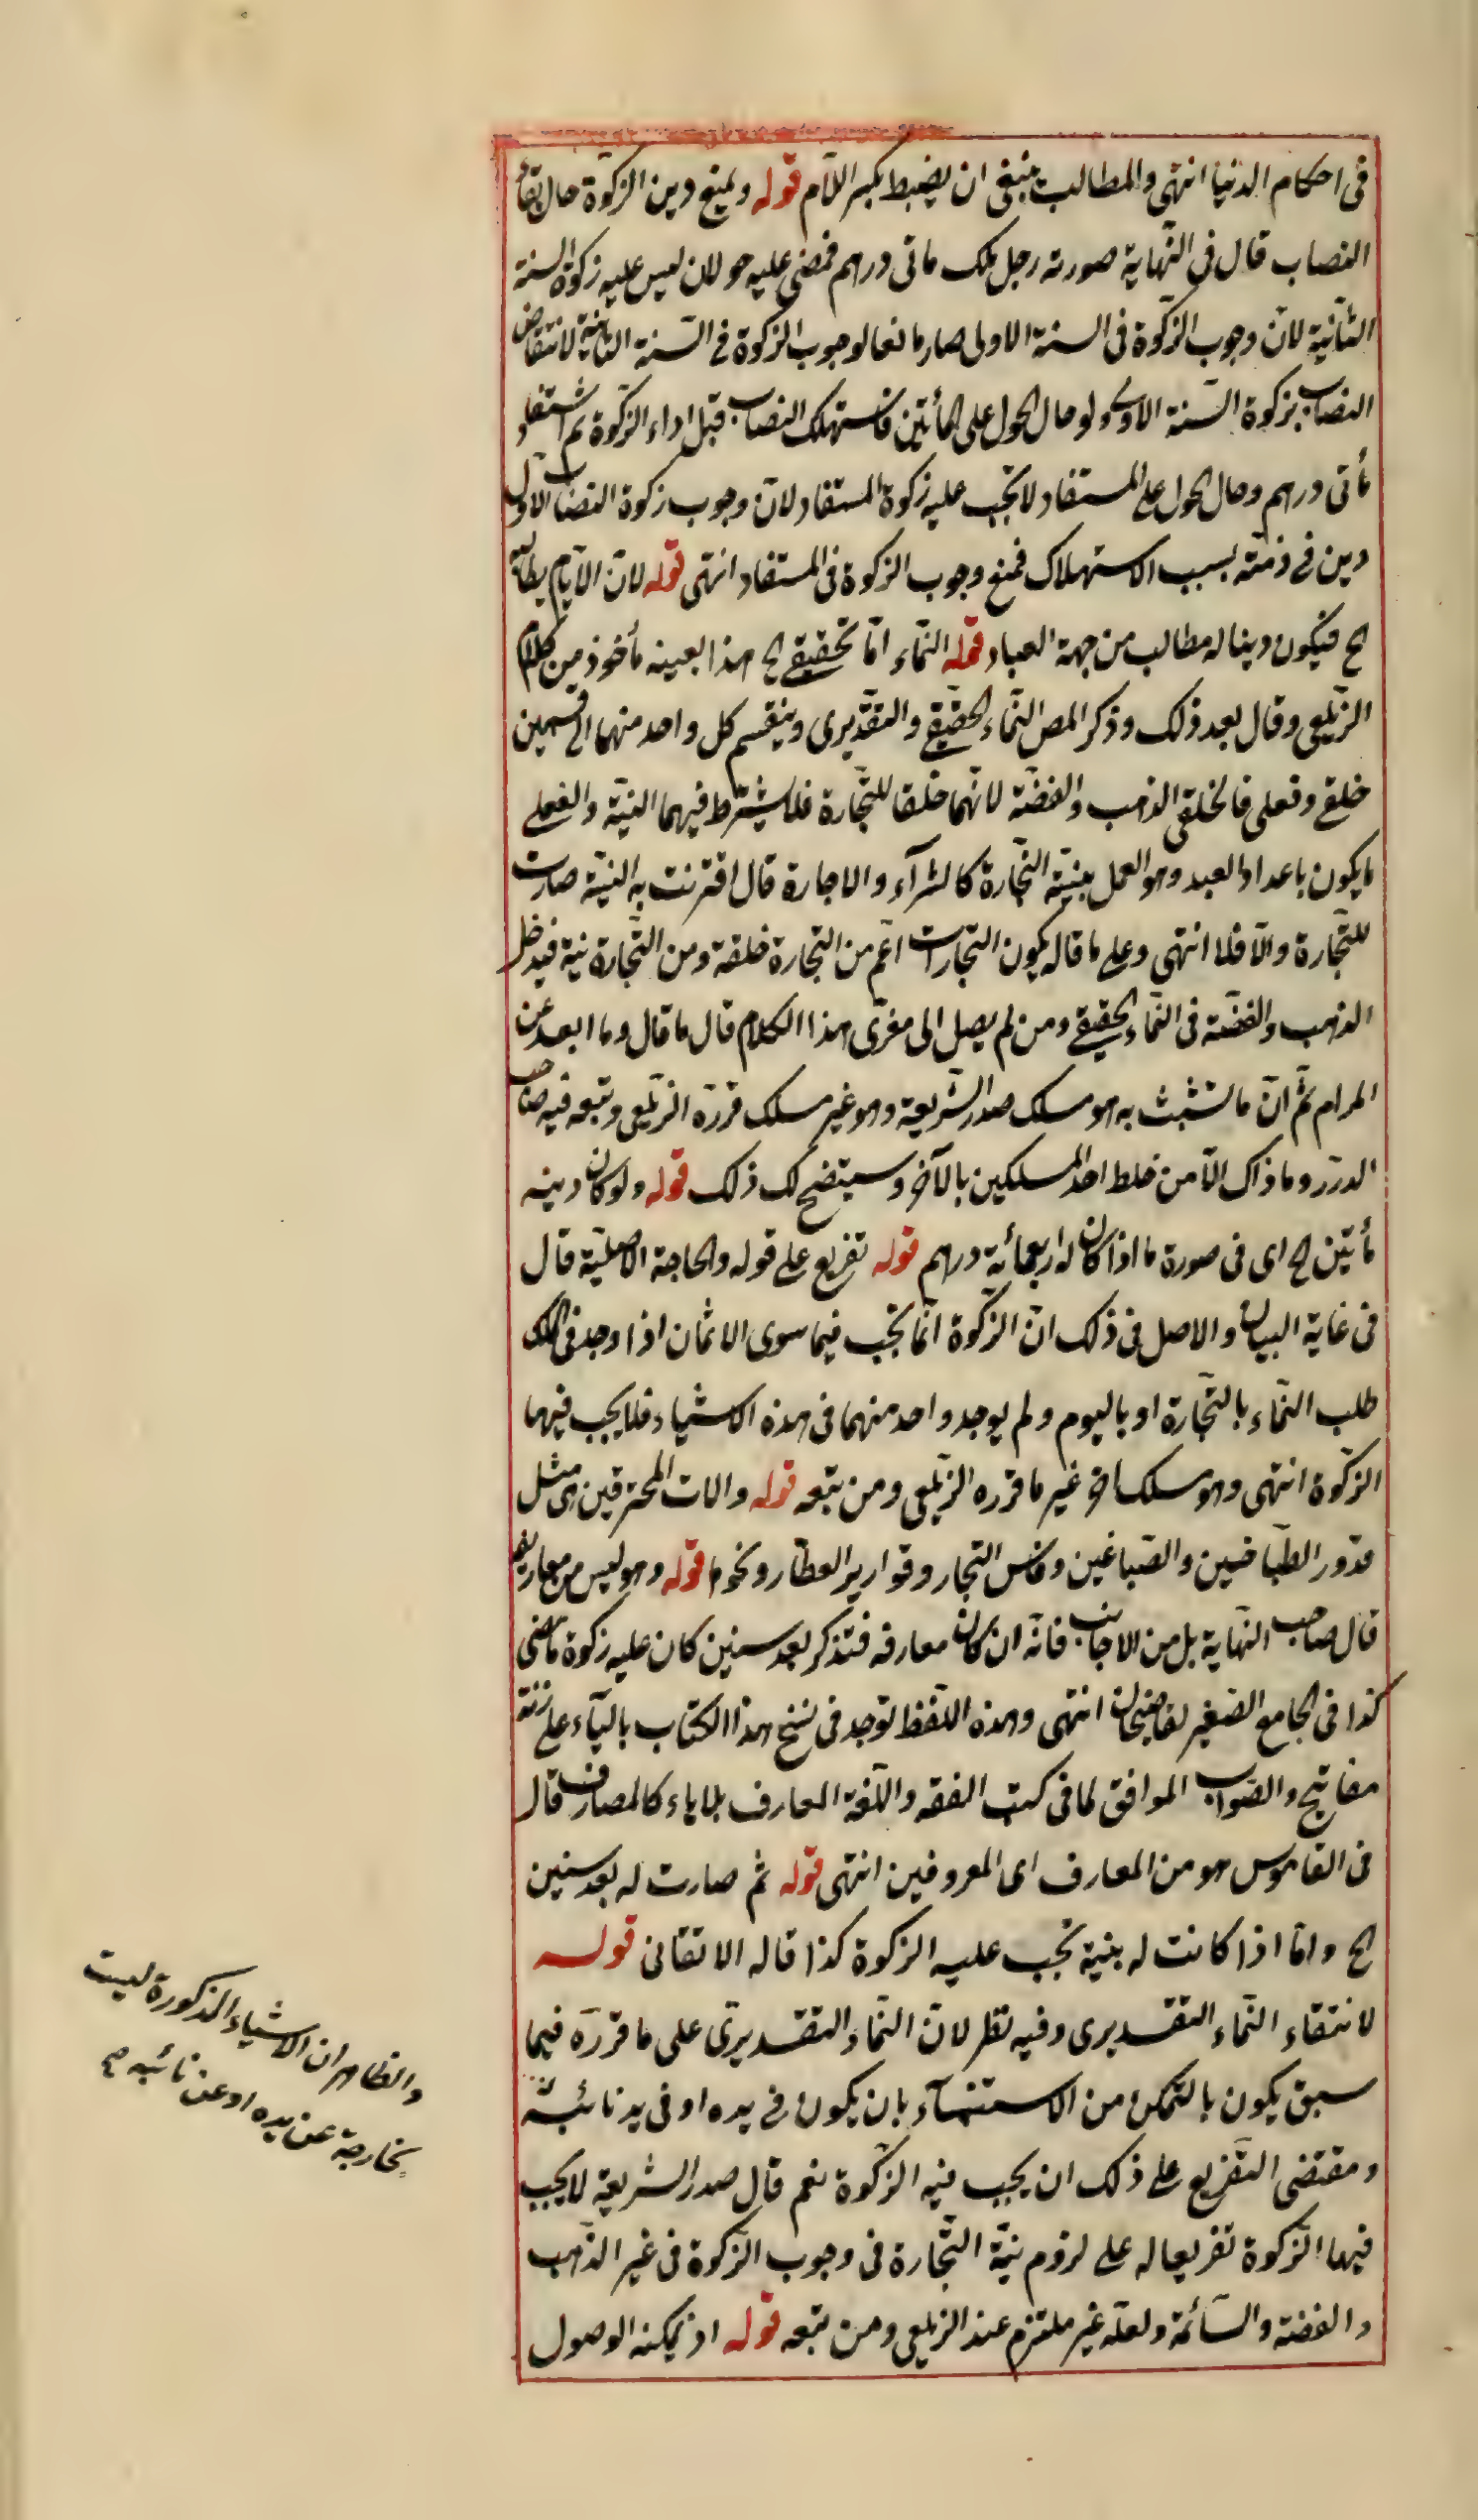 فى احكام الدنيا انتهى والمطالب ينبغى ان يضبط بكسر اللام قوله ويمنع دين الزكوة حال بقاء
النصاب قال فى النهاية صورته رجل ملك مائتى درهم فمضى عليه حولان ليس عليه زكوة السنة
الثانية لان وجوب الزكوة فى السنة الاولى صار مانعا لوجوب الزكوة فى السنة الثانية لانتقاض
النصاب بزكوة السنة الاولى ولو حال الحول على المأتين فاستهلك النصاب قبل اداء الزكوة ثم استفاد
مأتى درهم وحال الحول على المستفاد لا تجب عليه زكوة المستفاد لان وجوب زكوة النصاب الاول
دين فى ذمته بسبب الاستهلاك فمنع وجوب الزكوة فى المستفاد انتهى قوله لان الامام يطالبه
الخ فيكون دينا له مطالب من جهة العباد قوله النماء اما تحقيقى الخ هذا بعينه مأخوذ من كلام
الزيلعى وقال بعد ذلك وذكر المص النماء الحقيقى والتقديرى وينقسم كل واحد منهما الى قسمين
خلقى وفعلى فالخلقى الذهب والفضة لانهما خلقا للتجارة فلا يشترط فيهما النية والفعلى
ما يكون باعداد العبد وهو العمل بنية التجارة كالشرآء والاجارة قال اقترنت به النية صارت
للتجارة والا فلا انتهى وعلى ما قاله يكون التجارات اعم من التجارة خلقة ومن التجارة نية فيدخل
الذهب والفضة فى النماء الحقيقى ومن لم يصل الى مغزى هذا الكلام قال ما قال وما ابعد عن
المرام ثم ان ما تشبث به هو مسلك صدر الشريعة وهو غير مسلك قرره الزيلعى وتبعه فيه صاحب
الدرر وما ذاك الا من خلط احد المسلكين بالآخر وسيتضح لك ذلك قوله ولو كان دينه
مأتين الخ اى فى صورة ما اذا كان له اربعمائة درهم قوله تفريع على قوله والحاجة الاصلية قال
فى غاية البيان والاصل فى ذلك ان الزكوة انما تجب فيما سوى الاثمان اذا وجد فى الملك
طلب النماء بالتجارة او بالسوم ولم يوجد واحد منهما فى هذه الاشياء فلا يجب فيهما
الزكوة انتهى وهو مسلك اخر غير ما قرره الزيلعى ومن تبعه قوله والات المحترفين اى مثل
قدور الطباخين والصباغين وفاس النجار وقوارير العطار ونحوها قوله وهو ليس من معاريفه
قال صاحب النهاية بل من الاجانب فانه ان كان معارفه فتذكر بعد سنين كان عليه زكوة ما مضى
كذا فى الجامع الصغير لقاضيخان انتهى وهذه اللفظ توجد فى نسخ هذا الكتاب بالياء على زنة
مفاتيح والصواب الموافق لما فى كتب الفقه واللغة المعارف بلا ياء كالمصارف قال
فى القاموس هو من المعارف اى المعروفين انتهى قوله ثم صارت له بعد سنين
الخ واما اذا كانت له بنية تجب عليه الزكوة كذا قاله الاتقانى قوله
لانتفاء النماء التقديرى وفيه نظر لان النماء التقديرى على ما قرره فيما
سبق يكون بالتمكن من الاستنمآء بان يكون فى يده او فى يد نائبه
ومقتضى التفريع على ذلك ان يجب فيه الزكوة نعم قال صدر الشريعة لا يجب
فيها الزكوة تفريعا له على لزوم نية التجارة فى وجوب الزكوة فى غير الذهب
والفضة والسآئمة ولعله غير ملتزم عند الزيلعى ومن تبعه قوله اذ يمكنه الوصول
والظاهر ان الاشياء المذكورة ليست
بخارجة عن يده او عن نائبه